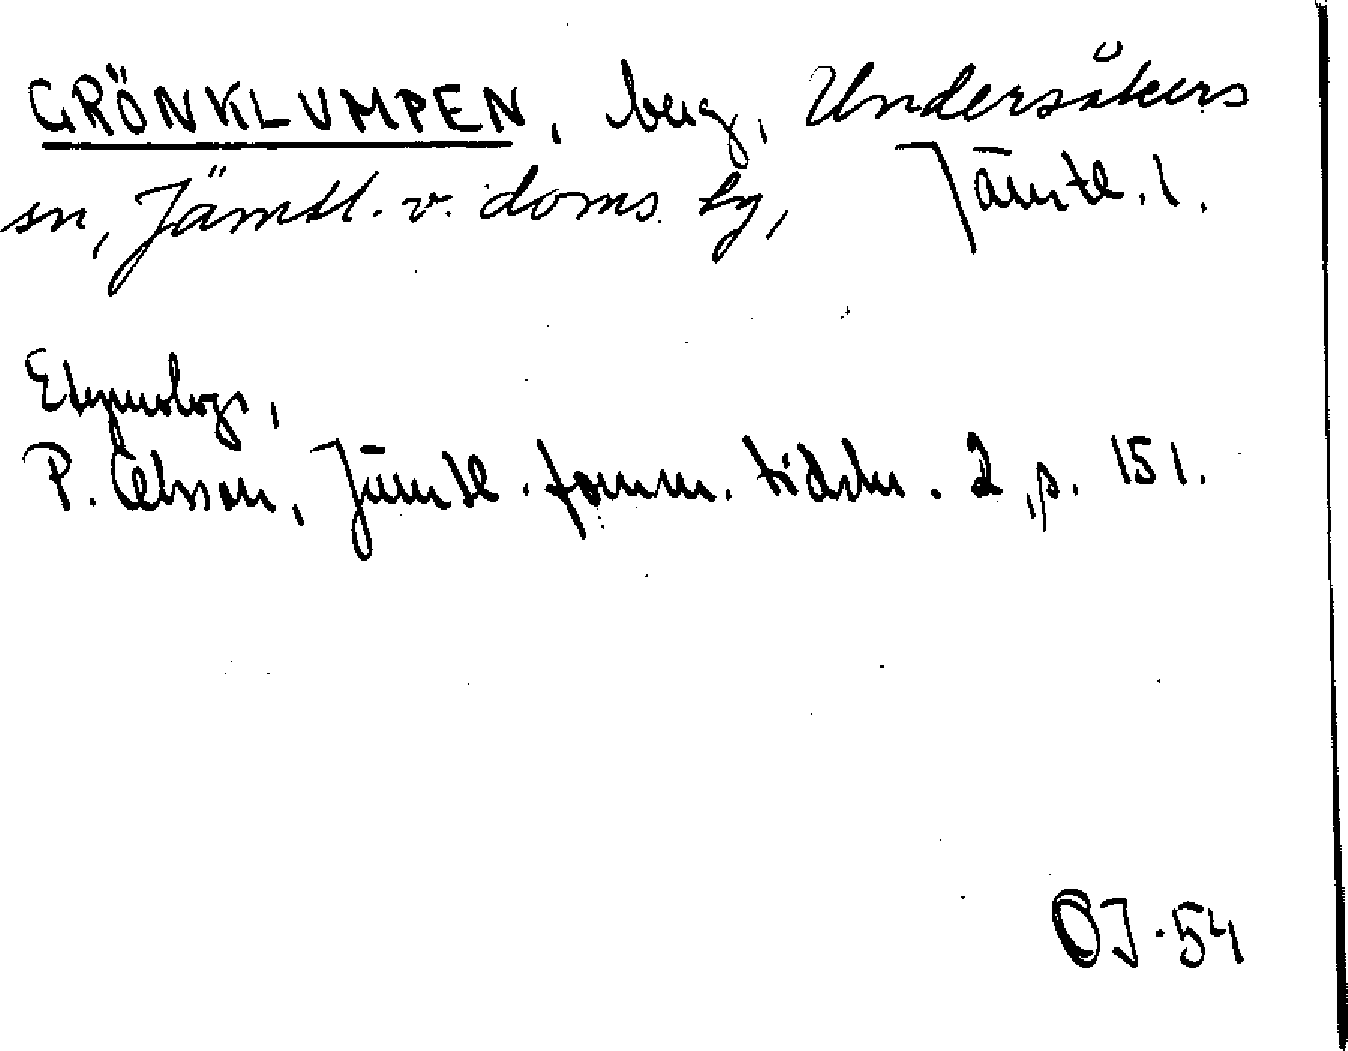 GRÖNKLUMPEN, berg, Undersåkers
sn, Jämtl. v. doms. hg, Jämtl. l.
Etymologi,
P. Olsson, Jämtl. fornm. tidskr. 2, s. 151.
OJ-54